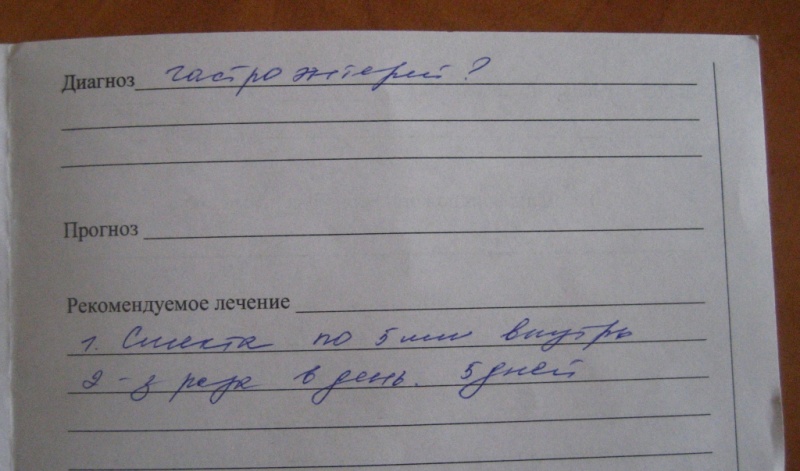 Диагноз гастроэнтерит?
Прогноз
Рекомендуемое лечение
1. Смекта по 5 мл внутрь
2-3 раза в день. 5 дней